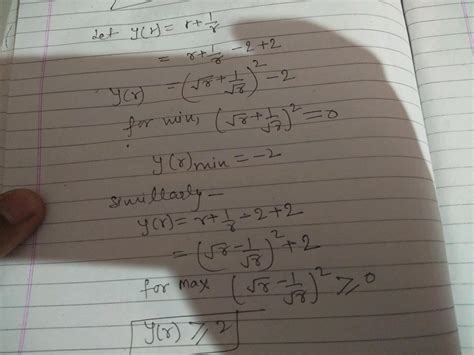 let y(r) = r + 1/r
= r + 1/r - 2 + 2
y(r) = (√r + 1/√r)² - 2
for min, (√r + 1/√r)² = 0
y(r)min = -2
simillarly -
y(r) = r + 1/r - 2 + 2
= (√r - 1/√r)² + 2
for max (√r - 1/√r)² ⩾ 0
y(r) ⩾ 2